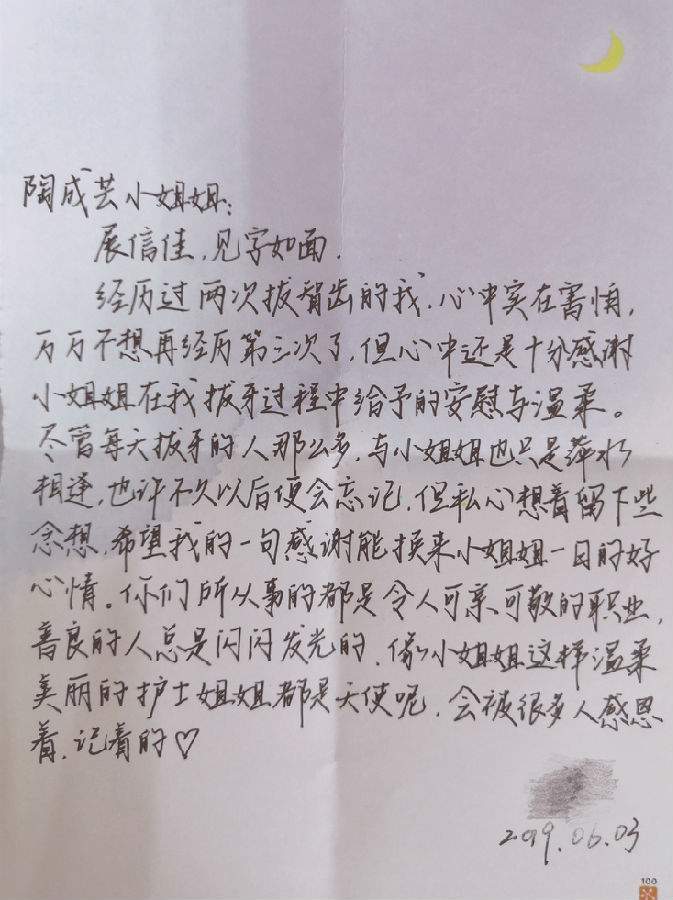 陶成芸小姐姐：
展信佳，见字如面．
经历过两次拔智齿的我．心中实在害怕，
万万不想再经历第三次了，但心中还是十分感谢
小姐姐在我拔牙过程中给予的安慰与温柔。
尽管每天拔牙的人那么多，与小姐姐也只是萍水
相逢，也许不久以后便会忘记，但私心想着留下些
念想，希望我的一句感谢能换来小姐姐一日的好
心情。你们所从事的都是令人可亲可敬的职业，
善良的人总是闪闪发光的，像小姐姐这样温柔
美丽的护士姐姐都是天使呢，会被很多人感恩
着、记着的♡
2019.06.03
100